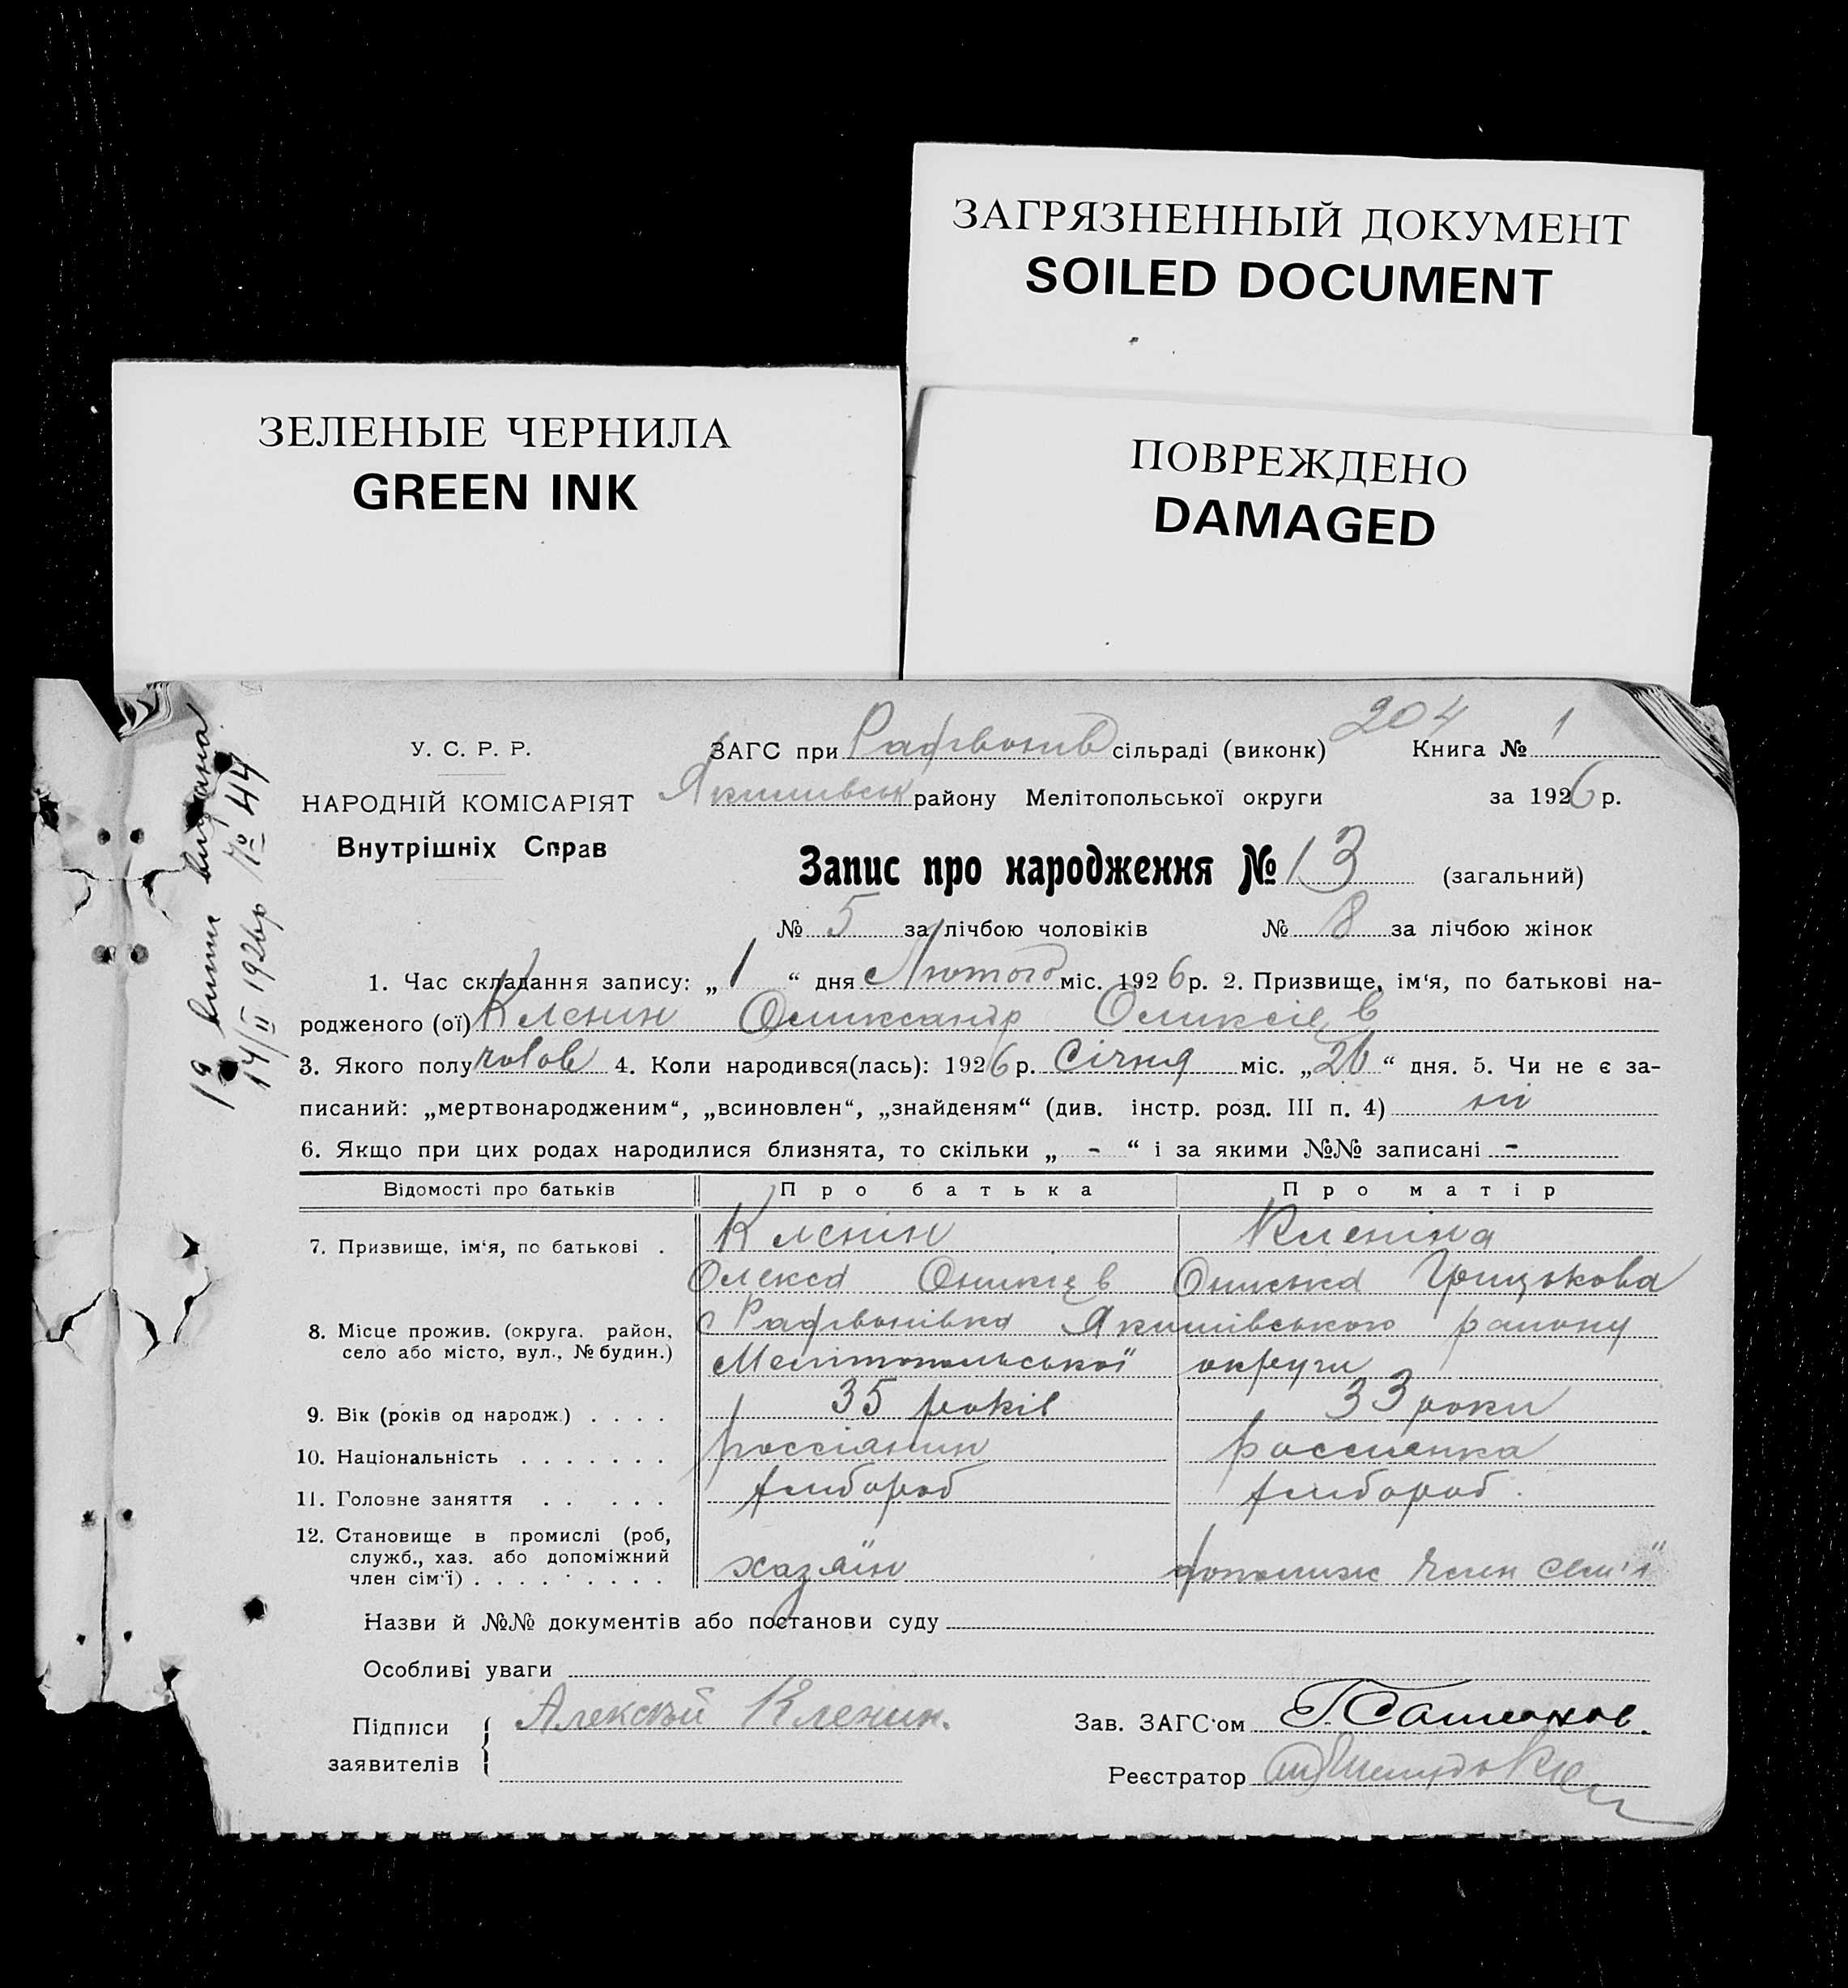 ЗАГРЯЗНЕННЫЙ ДОКУМЕНТ
SOILED DOCUMENT
ЗЕЛЕНЫЕ ЧЕРНИЛА
GREEN INK
ПОВРЕЖДЕНО
DAMAGED
204
У. С. Р. Р.
НАРОДНІЙ КОМІСАРІЯТ
Внутрішніх Справ
ЗАГС при сільраді (виконк) Книга № 1
Якимивськ району Мелітопольської округи за 1926 р.
Запис про народження № 13 (загальний)
№ 5 за лічбою чоловіків № 8 за лічбою жінок
1а випис видана
14/II 1926р № 44
1. Час складання запису: „ 1 “ дня Лютого міс. 1926 р. 2. Призвище, ім‘я, по батькові на-
родженого (ої) Кленин Олександр Олексієв
3. Якого полу чолов 4. Коли народився(лась): 1926 р. Січня міс. „ 26 “ дня. 5. Чи не є за-
писаний: „мертвонародженим“, „всиновлен“, „знайденям“ (див. інстр. розд. III п. 4) ні
6. Якщо при цих родах народилися близнята, то скільки „ - “ і за якими №№ записані -
Відомості про батьків Про батька Про матір
7. Призвище, ім‘я, по батькові . Кленін Кленіна
Олекса Оникієв Грицькова
8. Місце прожив. (округа. район, село або місто, вул., № будин.) Якимівського району
Мелітопольської округи
9. Вік (років од народж.) . . . . 35 років 33 роки
10. Національність . . . . . . . россіянин россиенка
11. Головне заняття . . . . . хлибороб хлибороб.
12. Становище в промислі (роб, служб., хаз. або допоміжний член сім‘ї) . . . . . . . . . хазяїн допомиж член сем'ї
Назви й №№ документів або постанови суду
Особливі уваги
Підписи заявителів { Алексѣй Кленин.
Зав. ЗАГС‘ом
Реєстратор